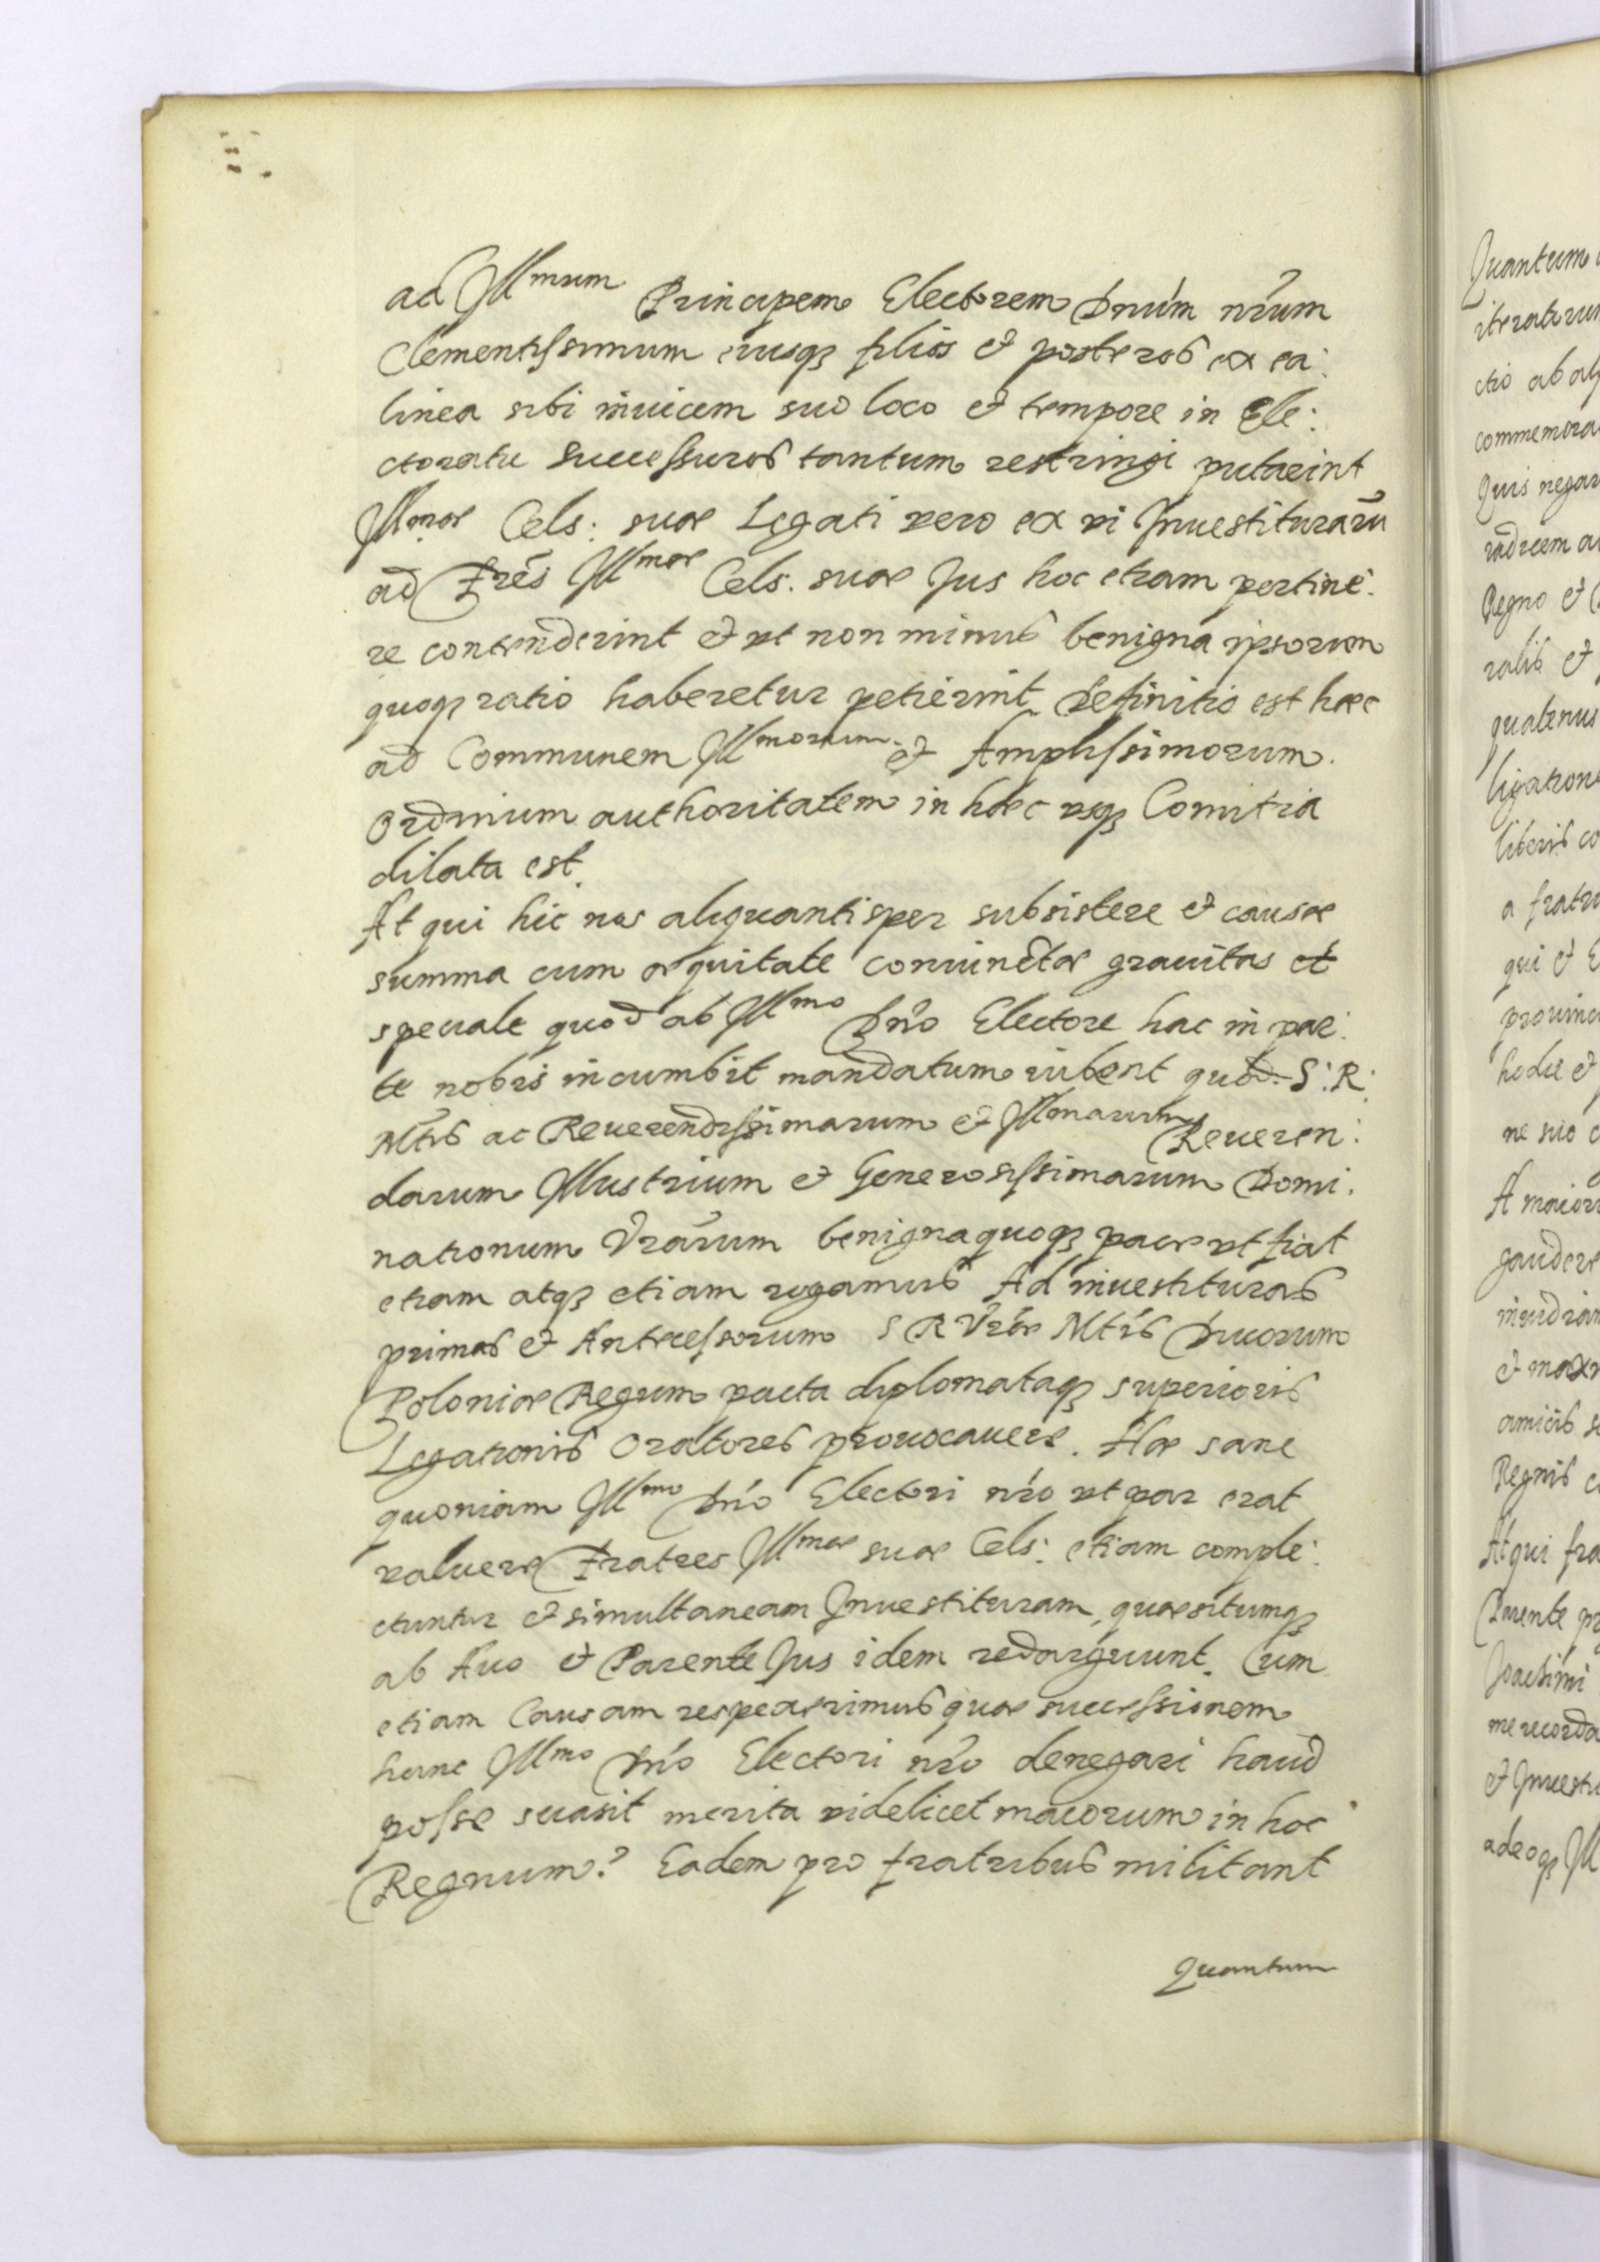 ad Illmum Principem Electorem Dnúm nr̃um
Clementissimum eiusqȝ filios et posteros ex ea:
linea sibi inuicem suo loco et tempore in Ele:
ctoratu Successuros tantum restringi putarint
Illmæ Cels: suæ Legati vero ex vi Inuestiturarũ
ad Frẽs Illmæ Cels. suæ Jus hoc etiam pertine:
re contenderint et vt non minus benigna ipsorum
quoqȝ ratio haberetur petierint Definitio est hæc
ad Communem Illmorum et Amplissimorum.
Ordinium authoritatem in hæc vsqȝ Comitia
dilata est.
At qui hic nos aliquantisper subsistere et causæ
summa cum æquitate coniunctæ grauitas et
speciale quod ab Illmo Dnó Electore hac in par:
te nobis incumbit mandatum iubent quod S: R:
Mtis ac Reuerendissimarum et Illmarum Reueren:
darum Illustrium et Generosissimarum Domi.
nationum Vrãrum benigna quoqȝ pace vt fiat
etiam atqȝ etiam rogamus Ad inuestituras
primas et Antecessorum S R Vrǽ Mtís Duorum
Poloniæ Regum pacta diplomataqȝ superioris
Legationis Oratores prouocauere. Hæ sane
quoniam Illmo Dnó Electori nró vt par erat
valuere Fratres Illmæ suæ Cels: etiam comple:
ctuntur et simultaneam Inuestituram, quæsitumqȝ
ab Auo et Parente Jus idem redarguunt. Cum
etiam Causam respexerimus quæ successionem
hanc Illmo Dnó Electori nró denegari haud
posse suasit merita videlicet maiorum in hoc
Regnum? Eadem pro fratribus militant
Quantum
Quantum
commemora
Quis negar
Regno et
ralis et
quatenus
liberis co
a fratru
qui et
hodie et
ne suo
A maiori
gaudere
amicis
Regnis
At qui fra
Parente
et Inuesti
adeoqȝ Ill